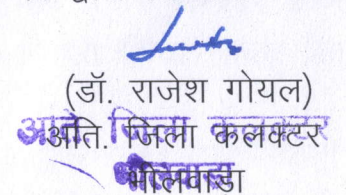 (डॉ. राजेश गोयल)
अति. जिला कलक्टर
भीलवाडा